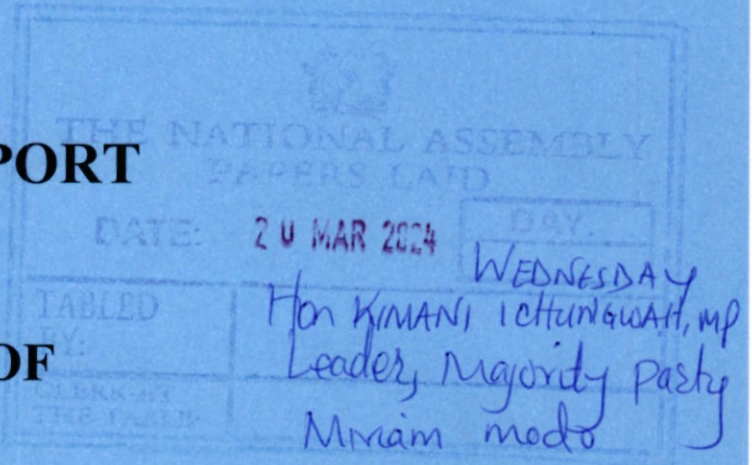 THE NATIONAL ASSEMBLY
PORT
PAPERS LAID
DATE: 20 MAR 2024 DAY.
WEDNESDAY
TABLED BY: Hon KIMANI ICHUNGWAH, MP
Leader, Majority Party
OF
CLERK-AT THE-TABLE: Miriam Modo